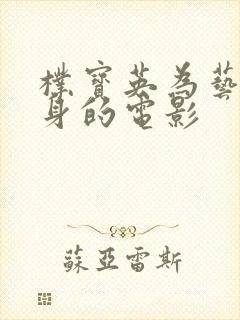 樸寶英為藝
身的電影
蘇亞雷斯